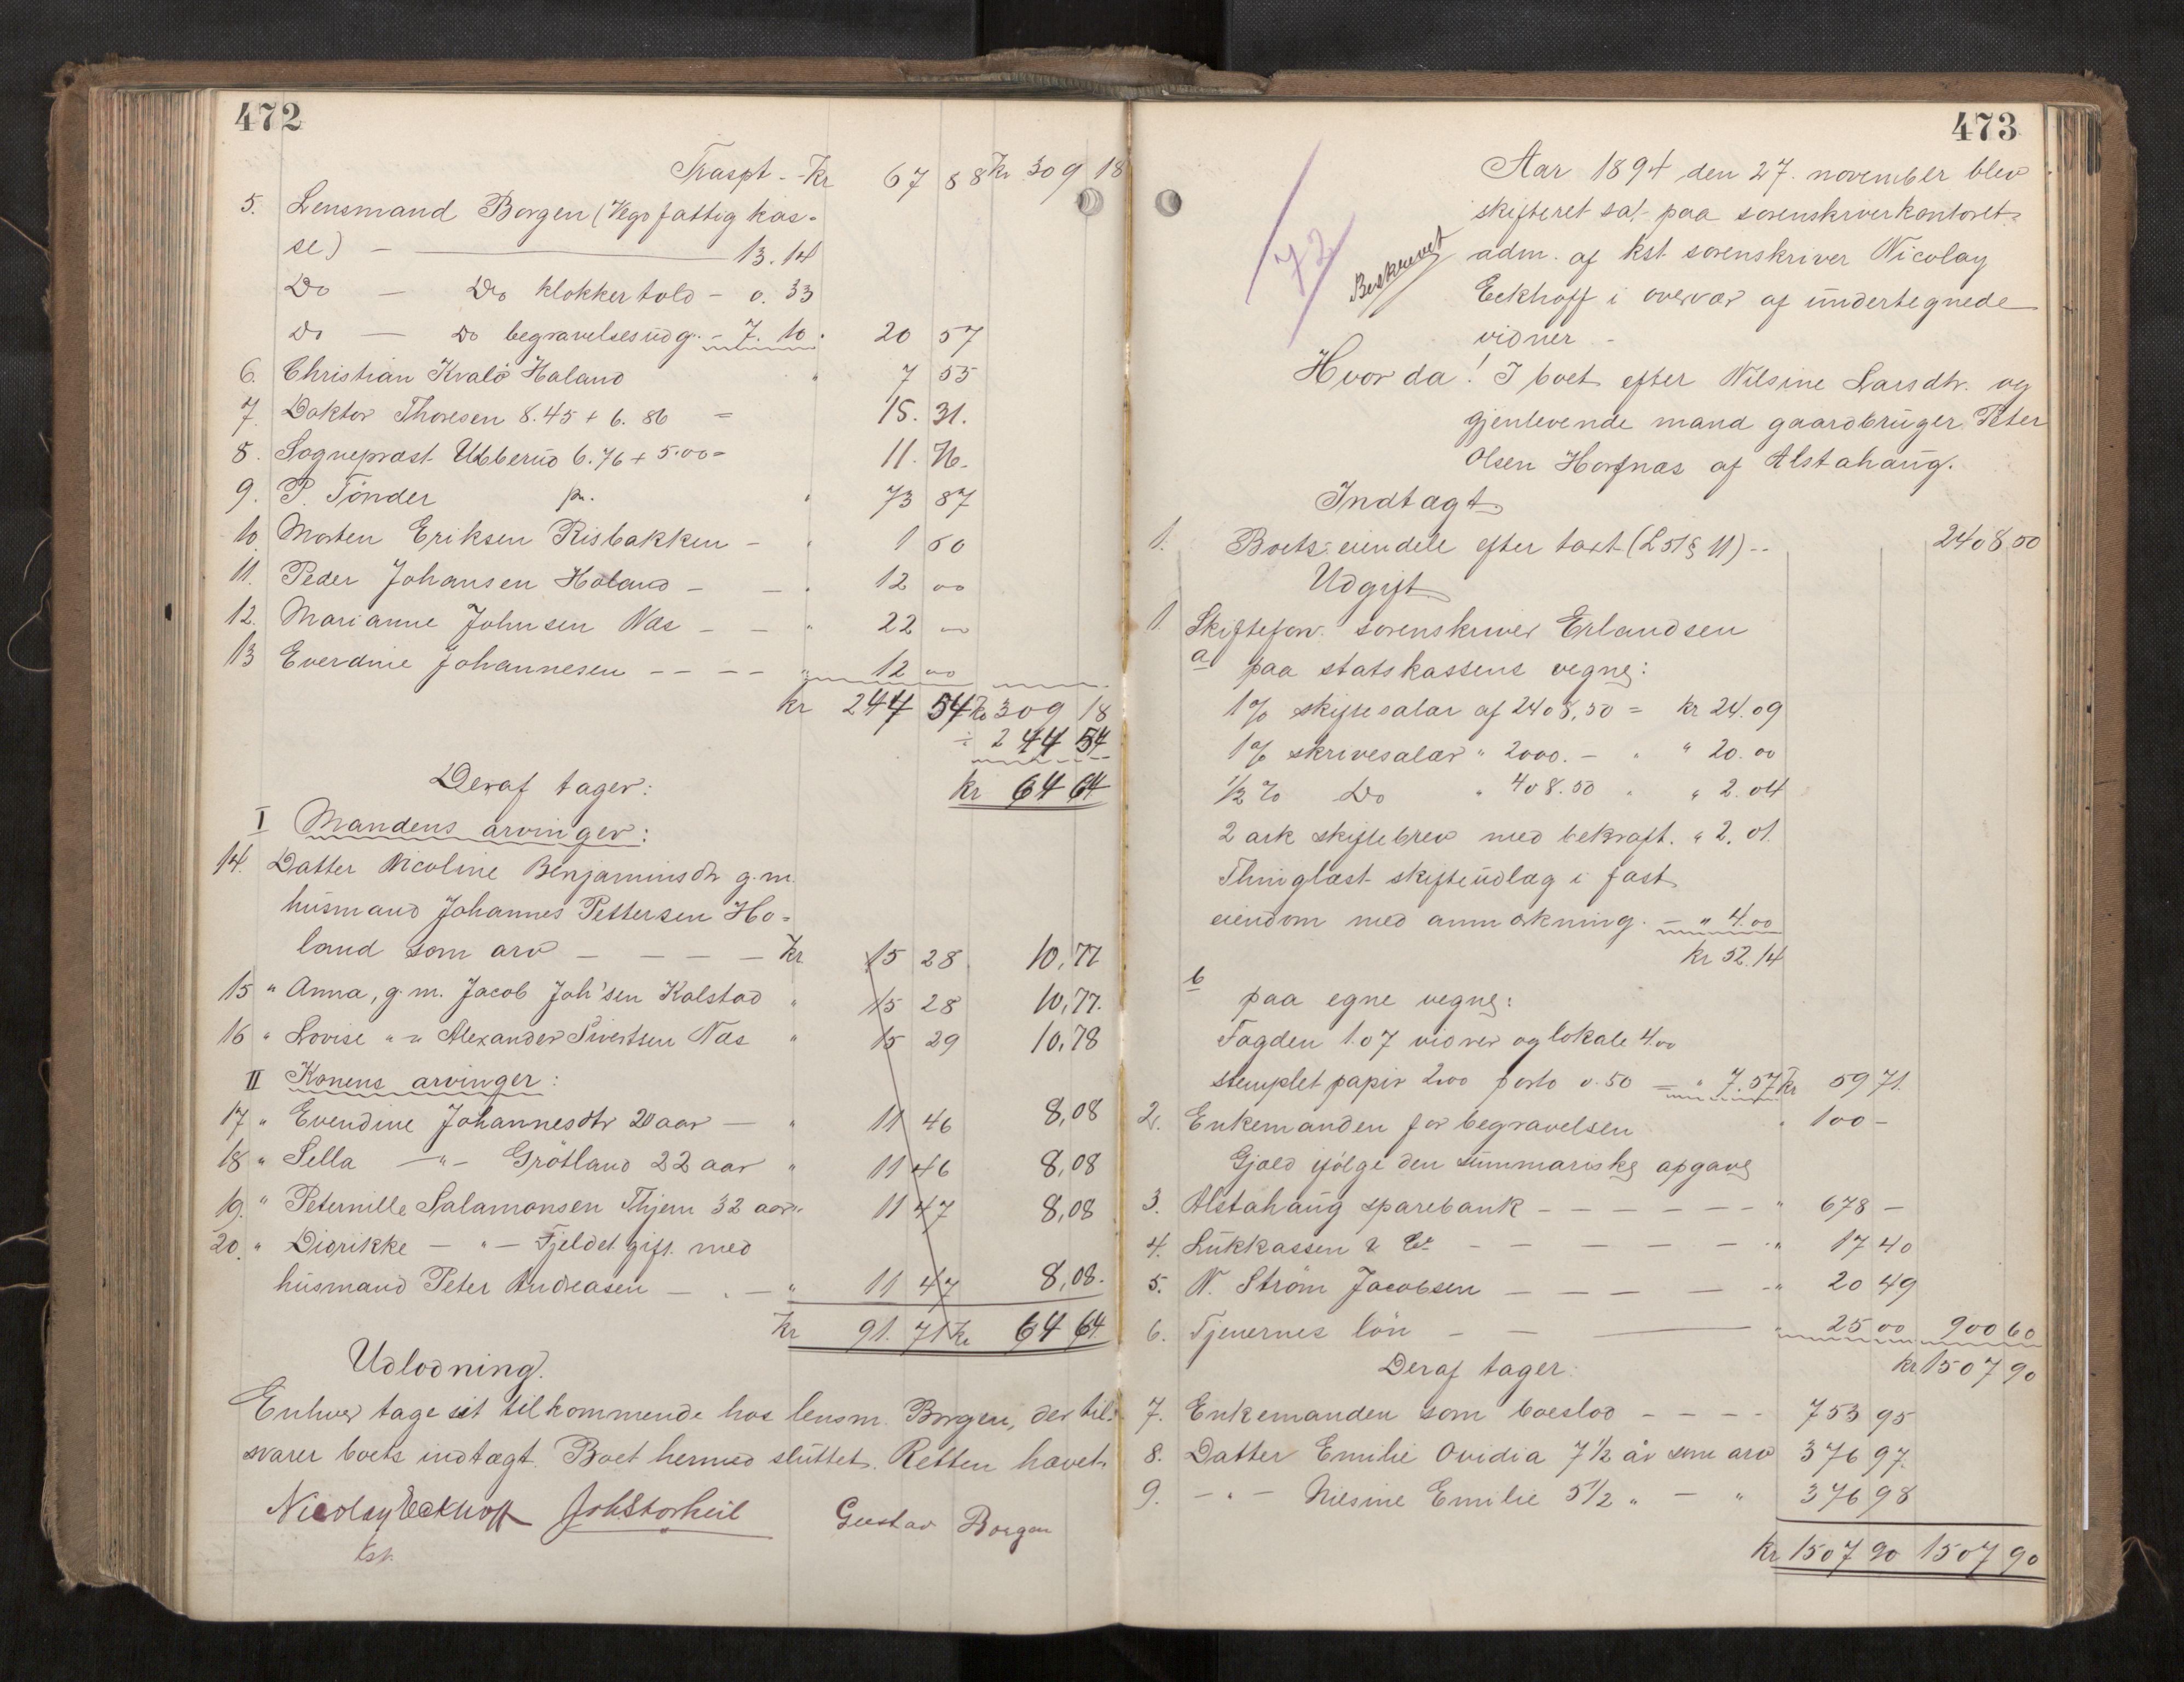 472
Traspt - kr 67 88 kr 309 18
5. Lensmand Borgen (Vegø fattigkas-
se) - 13.14
Do - Do klokkertold - 0.33
Do - Do begravelsesudg. - 7.10. 20 57
6. Christian Kvalø Haland " 7 55
7. Doktor Thoresen 8.45 + 6.86 = 15.31.
8. Sognepræst Ubberud 6.76 + 5.00 = 11.76.
9. P. Tønder pr. " 73 87
10. Morten Eriksen Risbakken - " 1 60
11. Peder Johansen Holand - - " 12 00
12. Marianne Johnsen Næs - - " 22 00
13 Everdine Johannesen - - - - " 12 00
kr 244 54 kr 309 18
÷ 244 54
kr 64 64
Deraf tager:
I Mandens arvinger:
14. Datter Nicoline Benjaminsdtr g.m.
husmand Johannes Pettersen Ho-
land som arv - - - - kr 15 28 10,77
15 " Anna, g.m. Jacob Joh'sen Kalstad " 15 28 10,77.
16 " Lovise " " Alexander Sivertsen Næs " 15 29 10,78
II Konens arvinger:
17 " Evendine Johannesdtr 20 aar - " 11 46 8,08
18 " Sella -"- Grøtland 22 aar " 11 46 8,08
19. " Peternille Salamonsen Thjem 32 aar " 11 47 8,08
20. " Didrikke - " - Fjeldet gift med
husmand Peter Andreasen - . - " 11 47 8,08.
kr 91. 71 kr 64 64
Udlodning.
Enhver tage sit tilkommende hos lensm. Borgen, der til-
svarer boets indtægt. Boet hermed sluttet. Retten hævet.
Nicolay Eckhoff Joh Storheil Gustav Borgen
kst.
473
Aar 1894 den 27. november blev
skifteret sat paa sorenskriverkontoret
adm. af kst sorenskriver Nicolay
Eckhoff i overvær af undertegnede
vidner -
72
Beskrevet
Hvor da! I boet efter Nilsine Larsdtr. og
gjenlevende mand gaardbruger Peter
Olsen Horfnæs af Alstahaug.
Indtægt
1. Boets eiendele efter taxt (L 51 § 11) - - 2408 50
Udgift
1. Skifteforv. sorenskriver Erlandsen
a paa statskassens vegne:
1% skiftesalær af 2408,50 = kr 24.09
1% skrivesalær " 2000. - " " 20.00
1/2 % Do " 408.50 " " 2.04
2 ark skiftebrev med bekræft. " 2.01.
Thinglæst skifteudlæg i fast
eiendom med anmærkning. - " 4.00
kr 52.14
b
paa egne vegne:
Fogden 1.07 vidner og lokale 4.00
stemplet papir 2.00 porto 0.50 = " 7.57 kr 59 71.
2. Enkemanden for begravelsen " 100 -
Gjæld ifølge den summariske opgave
3. Alstahaug sparebank - - - - - - " 678 -
4. Lukkassen & Co - - - - - " 17 40
5. N. Strøm Jacobsen - - - - - " 20 49
6. Tjenernes løn - - - " 25 00 900 60
Deraf tager: kr 1507 90
7. Enkemanden som boeslod - - - - 753 95
8. Datter Emilie Ovidia 7 1/2 år som arv 376 97.
9. - " - Nilsine Emilie 5 1/2 " - " 376 98
kr 1507 90 1507 90